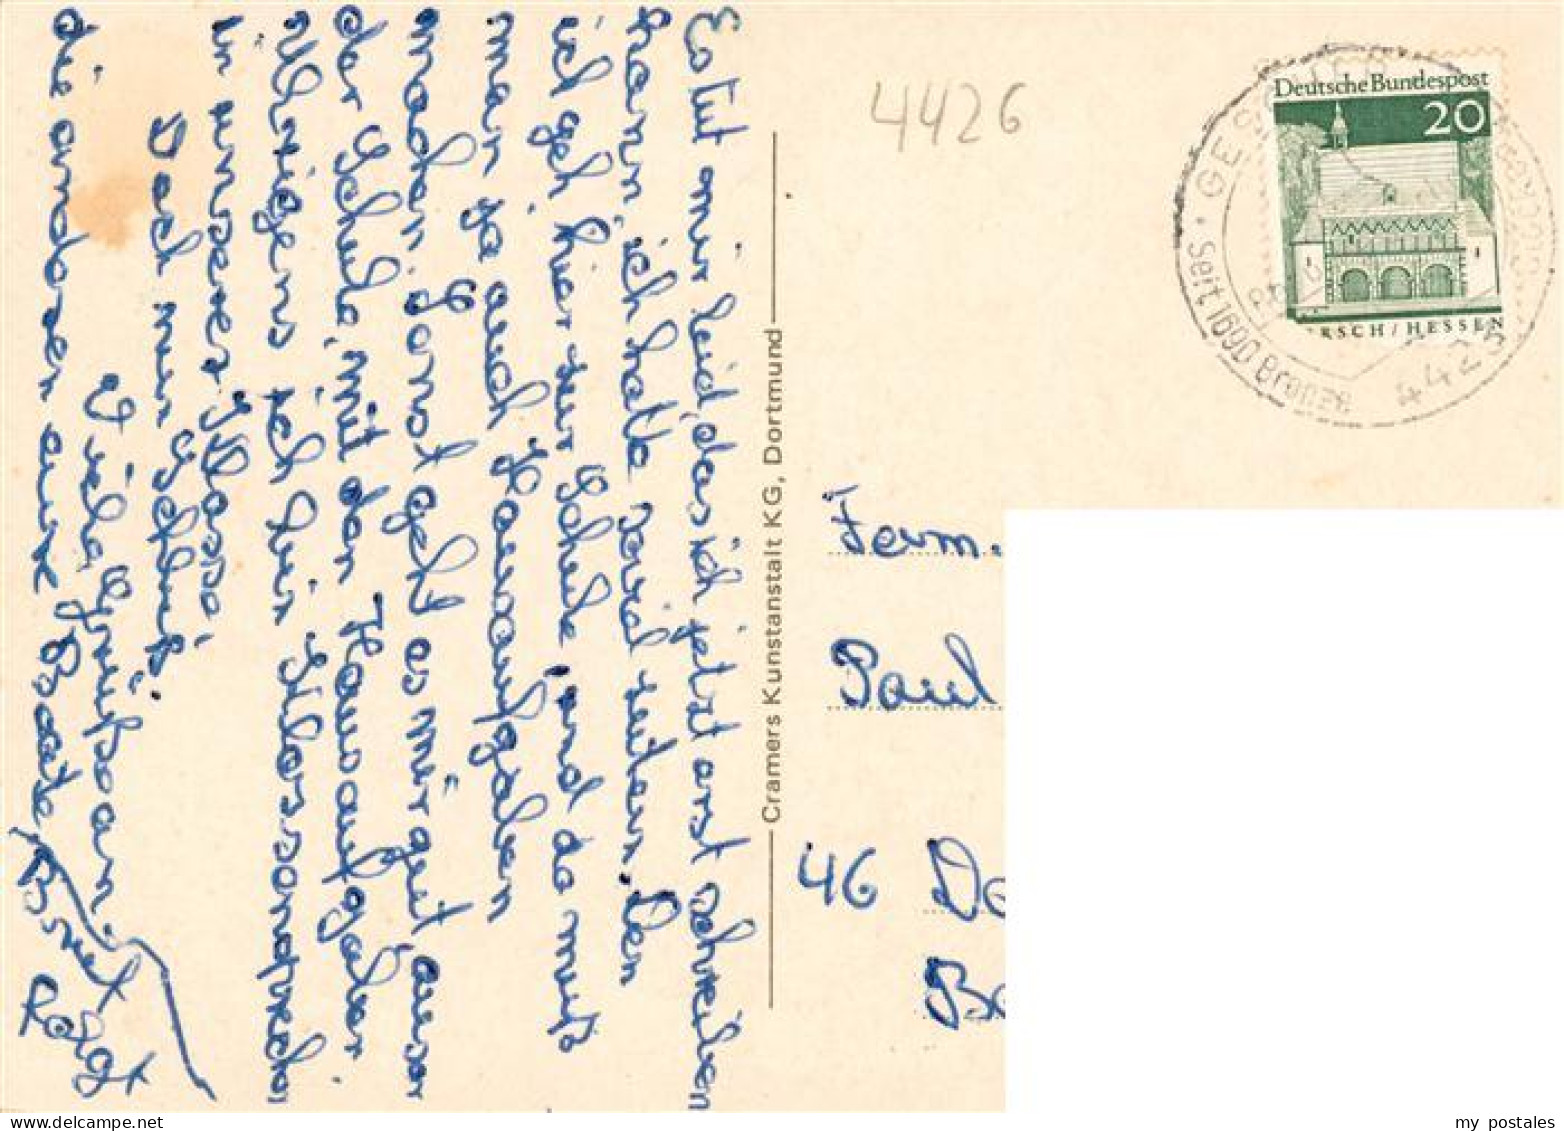 Es tut mir leid, das ich jetzt erst schreiben
kann, ich hatte soviel zu tun. Den
ich geh hier zur Schule, und da muß
man ja auch Hausaufgaben
machen. Sonst geht es mir gut, auser
der Schule, mit den Hausaufgaben.
Übrigens ich bin Klassensprecher
in unserer Klasse.
Doch nun Schluß.
Viele Grüße an
die anderen aus
4426
Deutsche Bundespost
20
RSCH/HESSEN
GE
Seit 1690 Bronze
442
Cramers Kunstanstalt KG, Dortmund
Fam.
Paul
46 Do